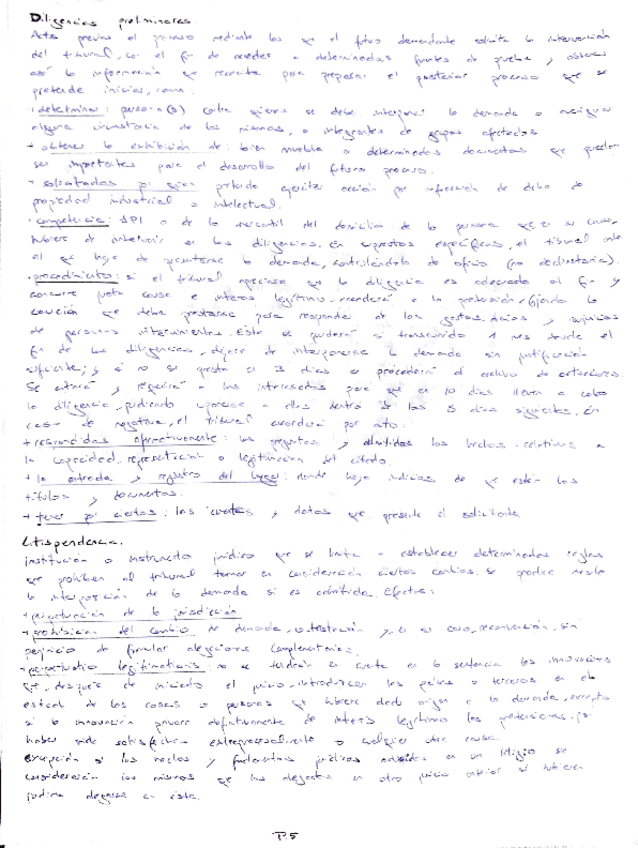 Diligencias preliminares.
Actos previos al proceso mediante los que el futuro demandante solicita la intervención
del tribunal, con el fin de acceder a determinadas fuentes de prueba y obtener
así la información que necesita para preparar el posterior proceso que se
pretende iniciar, como:
determinar: persona(s) contra quienes se debe interponer la demanda o averiguar
alguna circunstancia de las mismas, o integrantes de grupos afectados
+ obtener la exhibición de: bien mueble o determinados documentos que puedan
ser importantes para el desarrollo del futuro proceso.
+ solicitadas por quien pretenda ejercitar acción por infracción de dcho de
propiedad industrial o intelectual.
competencia: JPI o de lo mercantil del domicilio de la persona que en su caso,
hubiere de intervenir en las diligencias. En supuestos específicos, el tribunal ante
el que haya de presentarse la demanda, controlándolo de oficio (no declinatoria).
procedimiento: si el tribunal apreciase que la diligencia es adecuada al fin y
concurre justa causa e interés legítimo, accederá a la pretensión, fijando la
caución que debe prestarse para responder de los gastos, daños y perjuicios
de personas intervinientes. Esta se perderá si transcurrido 1 mes desde el
fin de las diligencias, dejare de interponerse la demanda sin justificación
suficiente; y si no se presta en 3 días se procederá al archivo de actuaciones.
Se citará y requerirá a los interesados para que en 10 días lleven a cabo
la diligencia, pudiendo oponerse a ellas dentro de los 5 días siguientes. En
caso de negativa, el tribunal acordará por auto:
+ respondidas afirmativamente: las preguntas y admitidos los hechos relativos a
la capacidad, representación o legitimación del citado.
+ la entrada y registro del lugar: donde haya indicios de que están los
títulos y documentos.
+ tener por ciertos: las cuentas y datos que presente el solicitante
Litispendencia.
institución o instrumento jurídico que se limita a establecer determinadas reglas
que prohíben al tribunal tomar en consideración ciertos cambios. Se produce desde
la interposición de la demanda si es admitida. Efectos:
+ perpetuación de la jurisdicción
+ prohibición del cambio de demanda, contestación y, en su caso, reconvención, sin
perjuicio de formular alegaciones complementarias.
+ perpetuatio legitimationis no se tendrán en cuenta en la sentencia las innovaciones
que, después de iniciado el juicio, introduzcan las partes o terceros en el
estado de las cosas o personas que hubiere dado origen a la demanda, excepto
si la innovación privare definitivamente de interés legítimo las pretensiones, por
haber sido satisfechas extraprocesalmente o cualquier otra causa.
excepción si los hechos y fundamentos jurídicos en un litigio se
consideración los mismos que los alegados en otro juicio anterior si hubiesen
podido alegarse en éste.
P.5